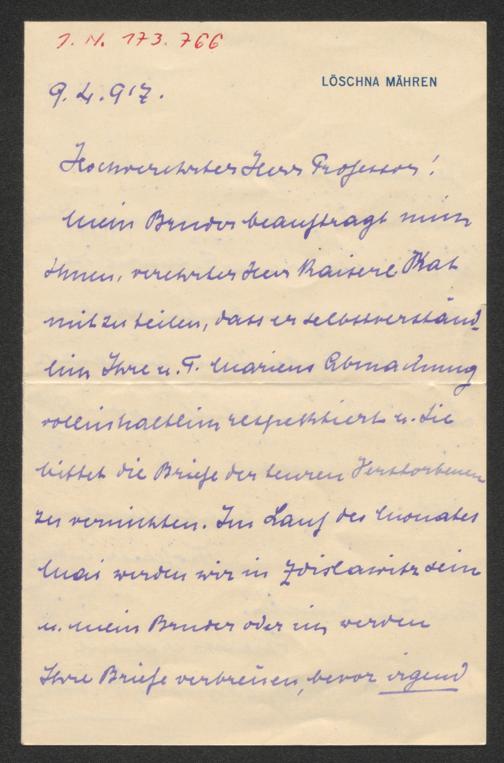 J. N. 173.766
LÖSCHNA MÄHREN
9. 4. 917.
Hochverehrter Herr Professor!
Mein Bruder beauftragt mich
Ihnen, verehrter Herr Kaiserl Rat
mitzuteilen, dass er selbstverständ-
lich Ihre u. T. Mariens Abmachung
vollinhaltlich respektiert u. Sie
bittet die Briefe der teuren Verstorbenen
zu vernichten. Im Lauf des Monates
Mai werden wir in Zdislawitz sein
u. mein Bruder oder ich werden
Ihre Briefe verbrennen, bevor irgend